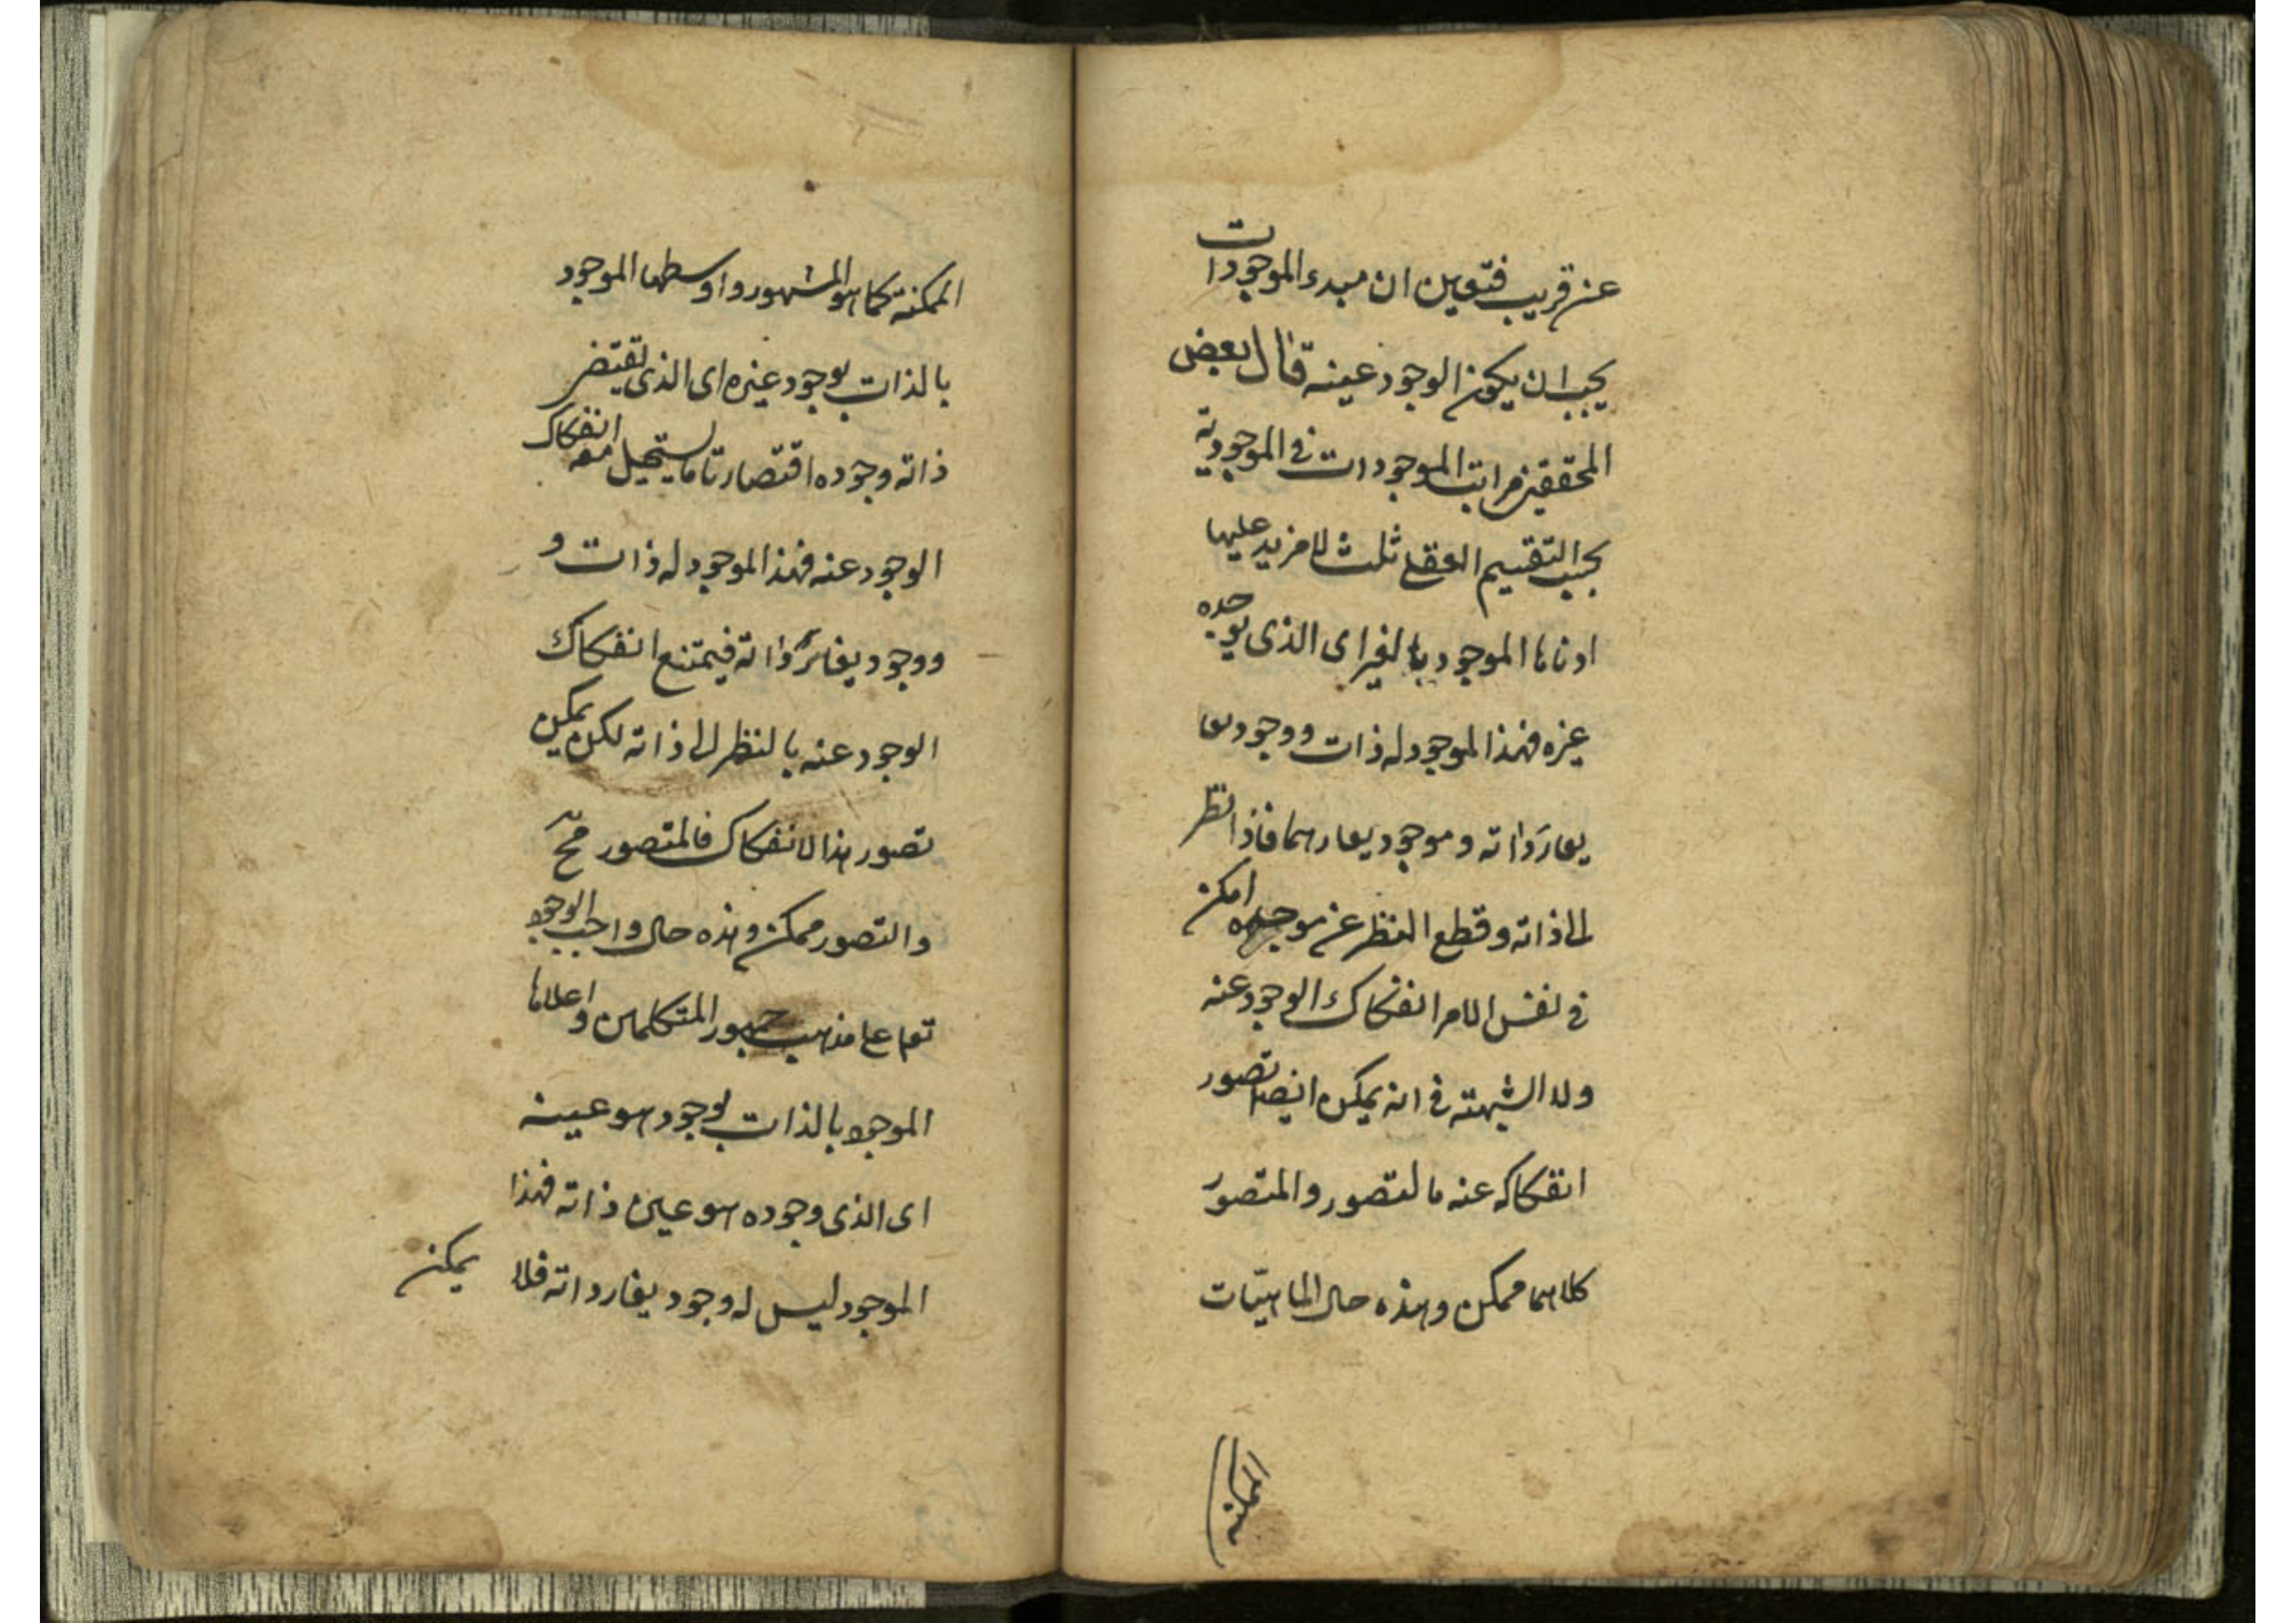 عن قريب فتعين ان مبدء الموجودات
يجب ان يكون الوجود عينه قال بعض
المحققين مراتب الموجودات في الموجودية
بحسب التقسيم العقلي ثلث لا مزيد عليها
ادناها الموجود بالغير اى الذى يوجده
غيره فهذا الموجود له ذات ووجود يغا
يغاير ذاته وموجود يغايرهما فاذا نظر
الى ذاته وقطع النظر عن موجده امكن
في نفس الامر انفكاك الوجود عنه
ولا الشبهته في انه يمكن ايضا تصور
انفكاكه عنه فالتصور والمتصور
كلاهما ممكن وهذه حال الماهيّات
الممكنة
الممكنة كما هو المشهور واوسطها الموجود
بالذات بوجود غيره اى الذى تقتضى
ذاته وجوده اقتضاء تاما يستحيل معه انفكاك
الوجود عنه فهذا الموجود له ذات و
ووجود يغاير ذاته فيمتنع انفكاك
الوجود عنه بالنظر الى ذاته لكن يمكن
تصور هذا الانفكاك فالمتصور محّ
والتصور ممكن وهذه حال واجب الوجود
تعا على مذهب جمهور المتكلمين واعلاها
الموجود بالذات بوجود هو عينه
اى الذى وجوده هو عين ذاته فهذا
الموجود ليس له وجود يغاير ذاته فلا
يمكن